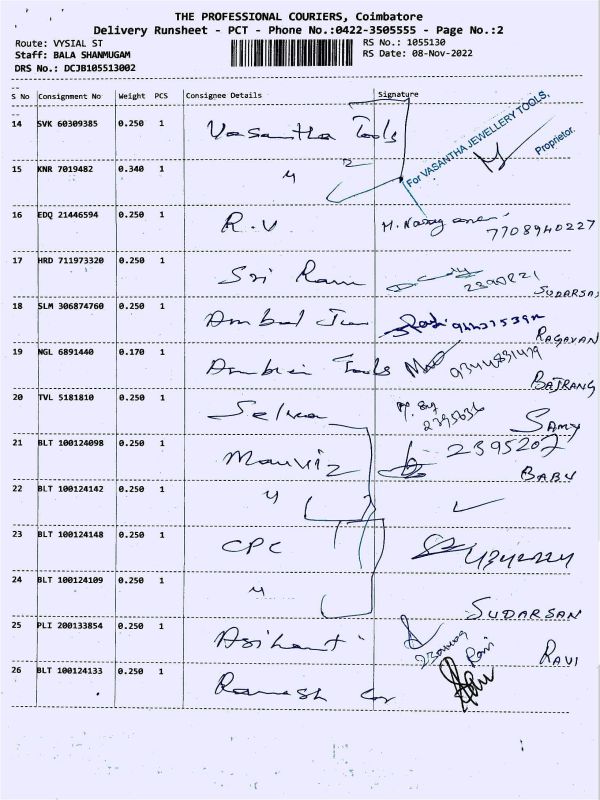 THE PROFESSIONAL COURIERS, Coimbatore
Delivery Runsheet - PCT - Phone No.:0422-3505555 - Page No.:2
Route: VYSIAL ST
RS No.: 1055130
Staff: BALA SHANMUGAM
RS Date: 08-Nov-2022
DRS No.: DCJB105513002
S No Consignment No Weight PCS Consignee Details Signature
14 SVK 60309385 0.250 1 Vasantha Tools
For VASANTHA JEWELLERY TOOLS,
Proprietor.
15 KNR 7019482 0.340 1 "
16 EDQ 21446594 0.250 1 R.V
7708940227
17 HRD 711973320 0.250 1 Sri Ram
2390821
SUDARSA
18 SLM 306874760 0.250 1
RAGAVAN
19 NGL 6891440 0.170 1 Tools 9344831479
BAJRANG
20 TVL 5181810 0.250 1 Selva
2395636
SAMY
21 BLT 100124098 0.250 1 2395207
BABU
22 BLT 100124142 0.250 1 "
23 BLT 100124148 0.250 1 CPC
24 BLT 100124109 0.250 1 "
SUDARSAN
25 PLI 200133854 0.250 1 Asihanti
Ravi
RAVI
26 BLT 100124133 0.250 1 Ramesh